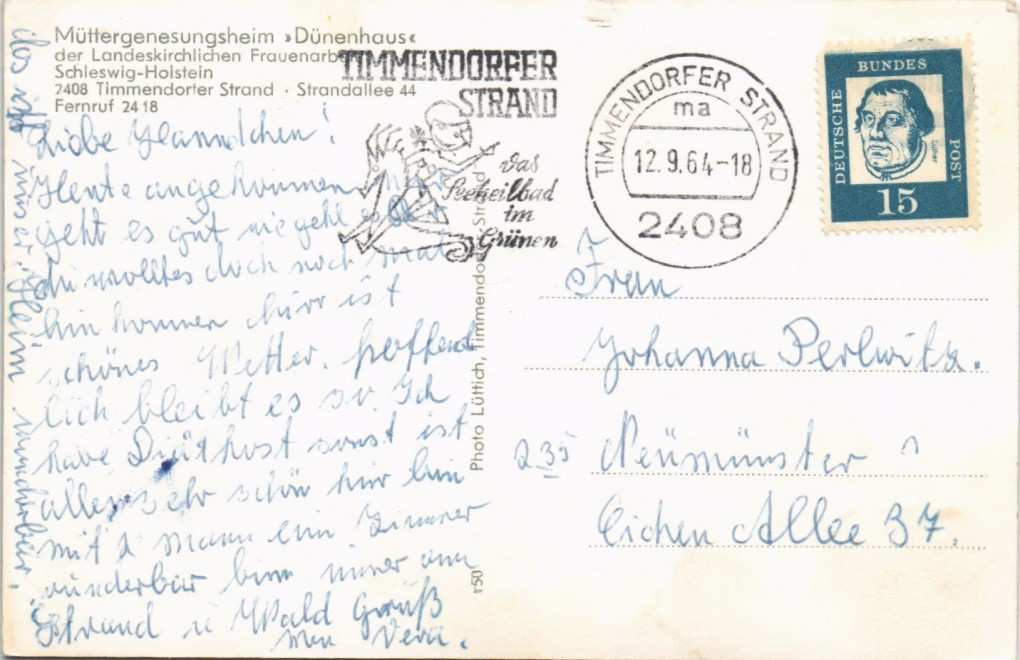 Müttergenesungsheim »Dünenhaus«
der Landeskirchlichen Frauenarb
Schleswig-Holstein
2408 Timmendorfer Strand · Strandallee 44
Fernruf 24 18
TIMMENDORFER
STRAND
das
Seeheilbad
im
Grünen
TIMMENDORFER STRAND
ma
12.9.64-18
2408
DEUTSCHE
BUNDES
POST
Luther
15
Liebe Hannchen!
Heute angekommen mir
geht es gut wie geht es
du wolltes doch noch mal
hin kommen hier ist
schönes Wetter. hoffend
lich bleibt es so. Ich
habe Diätkost sonst ist
alles sehr schön hier bin
mit 2 mann ein Zimmer
wunderbar bin immer am
Strand u Wald Gruß
Vera.
das ist unser Heim wunderbar.
Photo Lüttich, Timmendorfer Strand
t50
Frau
Johanna Perlwitz.
235 Neumünster
Eichen Allee 37.